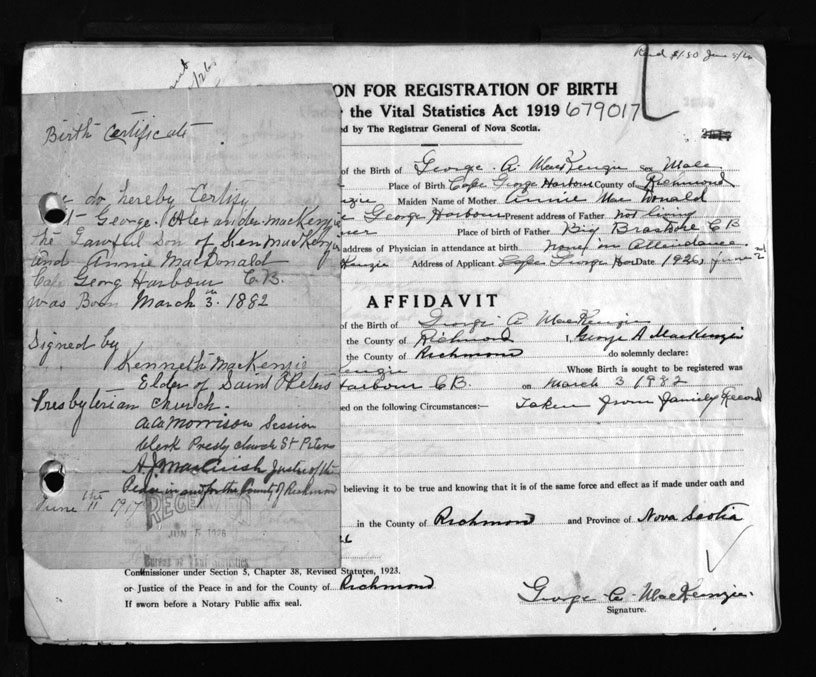 Birth Certificate
do hereby Certify
George Alexander MacKenzie
the Lawful Son of Ken MacKenzie
and Annie MacDonald
Cape Georg Harbour C.B.
was Born March 3rd 1882
Signed by
Kenneth MacKenzie
Elder of Saint Peters
Presbyterian Church.
Morrison Session
Clerk Presby church St Peters
A J Justice of the
Peace in and for the County of Richmond
June 11th
RECEIVED
JUN 5 1926
Bureau of Vital Statistics
ON FOR REGISTRATION OF BIRTH
the Vital Statistics Act 1919 679017
ed by The Registrar General of Nova Scotia.
of the Birth of George A MacKenzie a Male
Place of Birth Cape George Harbour County of Richmond
Maiden Name of Mother Annie Mac Donald
George Harbour Present address of Father not living
Place of birth of Father Big C B
address of Physician in attendance at birth none in Attendance
Kenzie Address of Applicant Cape George Har Date 1926 June 2nd
AFFIDAVIT
of the Birth of George A MacKenzie
the County of Richmond I, George A MacKenzie
the County of Richmond do solemnly declare:
enzie Whose Birth is sought to be registered was
Harbour C B. on March 3 1882
ed on the following Circumstances:— Taken from family Record
believing it to be true and knowing that it is of the same force and effect as if made under oath and
in the County of Richmond and Province of Nova Scotia
26
Commissioner under Section 5, Chapter 38, Revised Statutes, 1923.
or Justice of the Peace in and for the County of Richmond
If sworn before a Notary Public affix seal.
George A MacKenzie.
Signature.